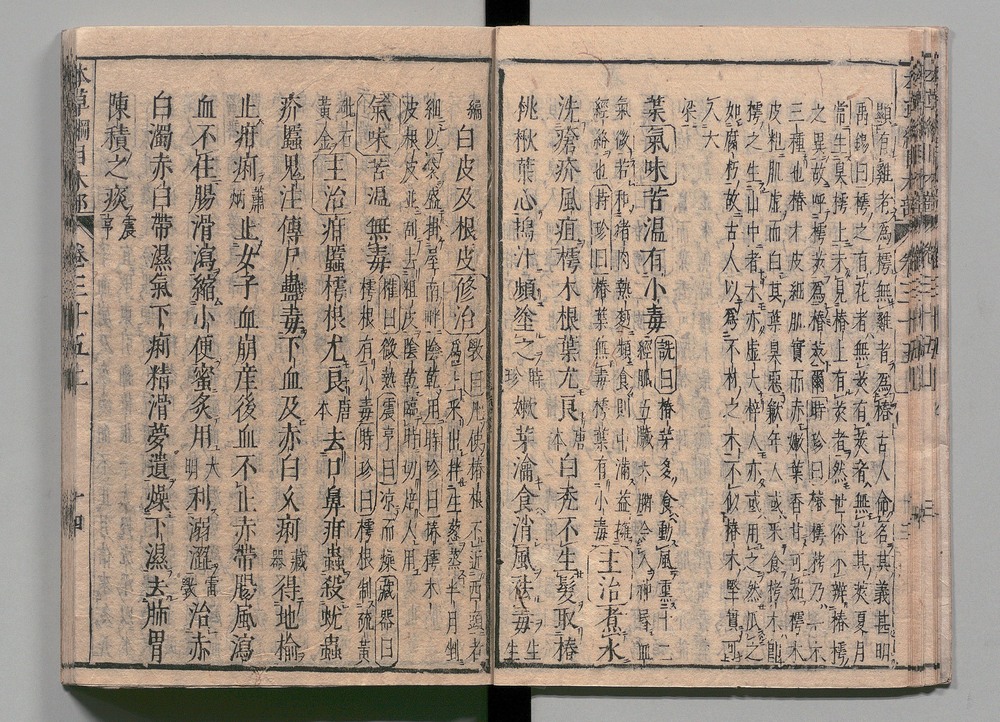 顯有雞者為樗無雞者為椿古人命名其義甚明
禹錫曰樗之有花者無莢有莢者無花其莢夏月
常生臭樗上未見椿上有莢者然世俗不辨椿樗
之異故呼樗莢為椿莢爾時珍曰椿樗栲乃一木
三種也椿木皮細肌實而赤嫩葉香甘可茹樗木
皮粗肌虛而白其葉臭惡歉年人或采食栲木即
樗之生山中者木亦虛大梓人亦或用之然爪之
如腐朽故古人以為不材之木不似椿木堅實可入
棟梁
葉氣味苦温有小毒詵曰椿芽多食動風熏十二
經脈五臟六腑令人神昏血
氣微若和豬肉熱麪頻食則中滿蓋擁
經絡也時珍曰椿葉無毒樗葉有小毒主治煮水
洗瘡疥風疽樗木根葉尤良唐本白禿不生髮取椿
桃楸葉心搗汁頻塗之時珍嫩芽瀹食消風祛毒生生
編
白皮及根皮修治斅曰凡使椿根不近西頭者
為上采出拌生葱蒸半月剉
細以袋盛掛屋南畔陰乾用時珍曰椿樗木
皮根皮並刮去粗皮陰乾臨時切焙入用
氣味苦温無毒權曰微熱震亨曰凉而燥藏器曰
樗根有小毒時珍曰樗根制硫黃
砒石黃金主治疳䘌樗根尤良唐本去口鼻疳蟲殺蚘蟲
疥䘌鬼注傳尸蠱毒下血及赤白久痢藏器得地榆
止疳痢蕭炳止女子血崩産後血不止赤帶腸風瀉
血不住腸滑瀉縮小便蜜炙用大明利溺澀雷斅治赤
白濁赤白帶濕氣下痢精滑夢遺燥下濕去肺胃
陳積之痰震亨
本草綱目木部 卷三十五上 十四